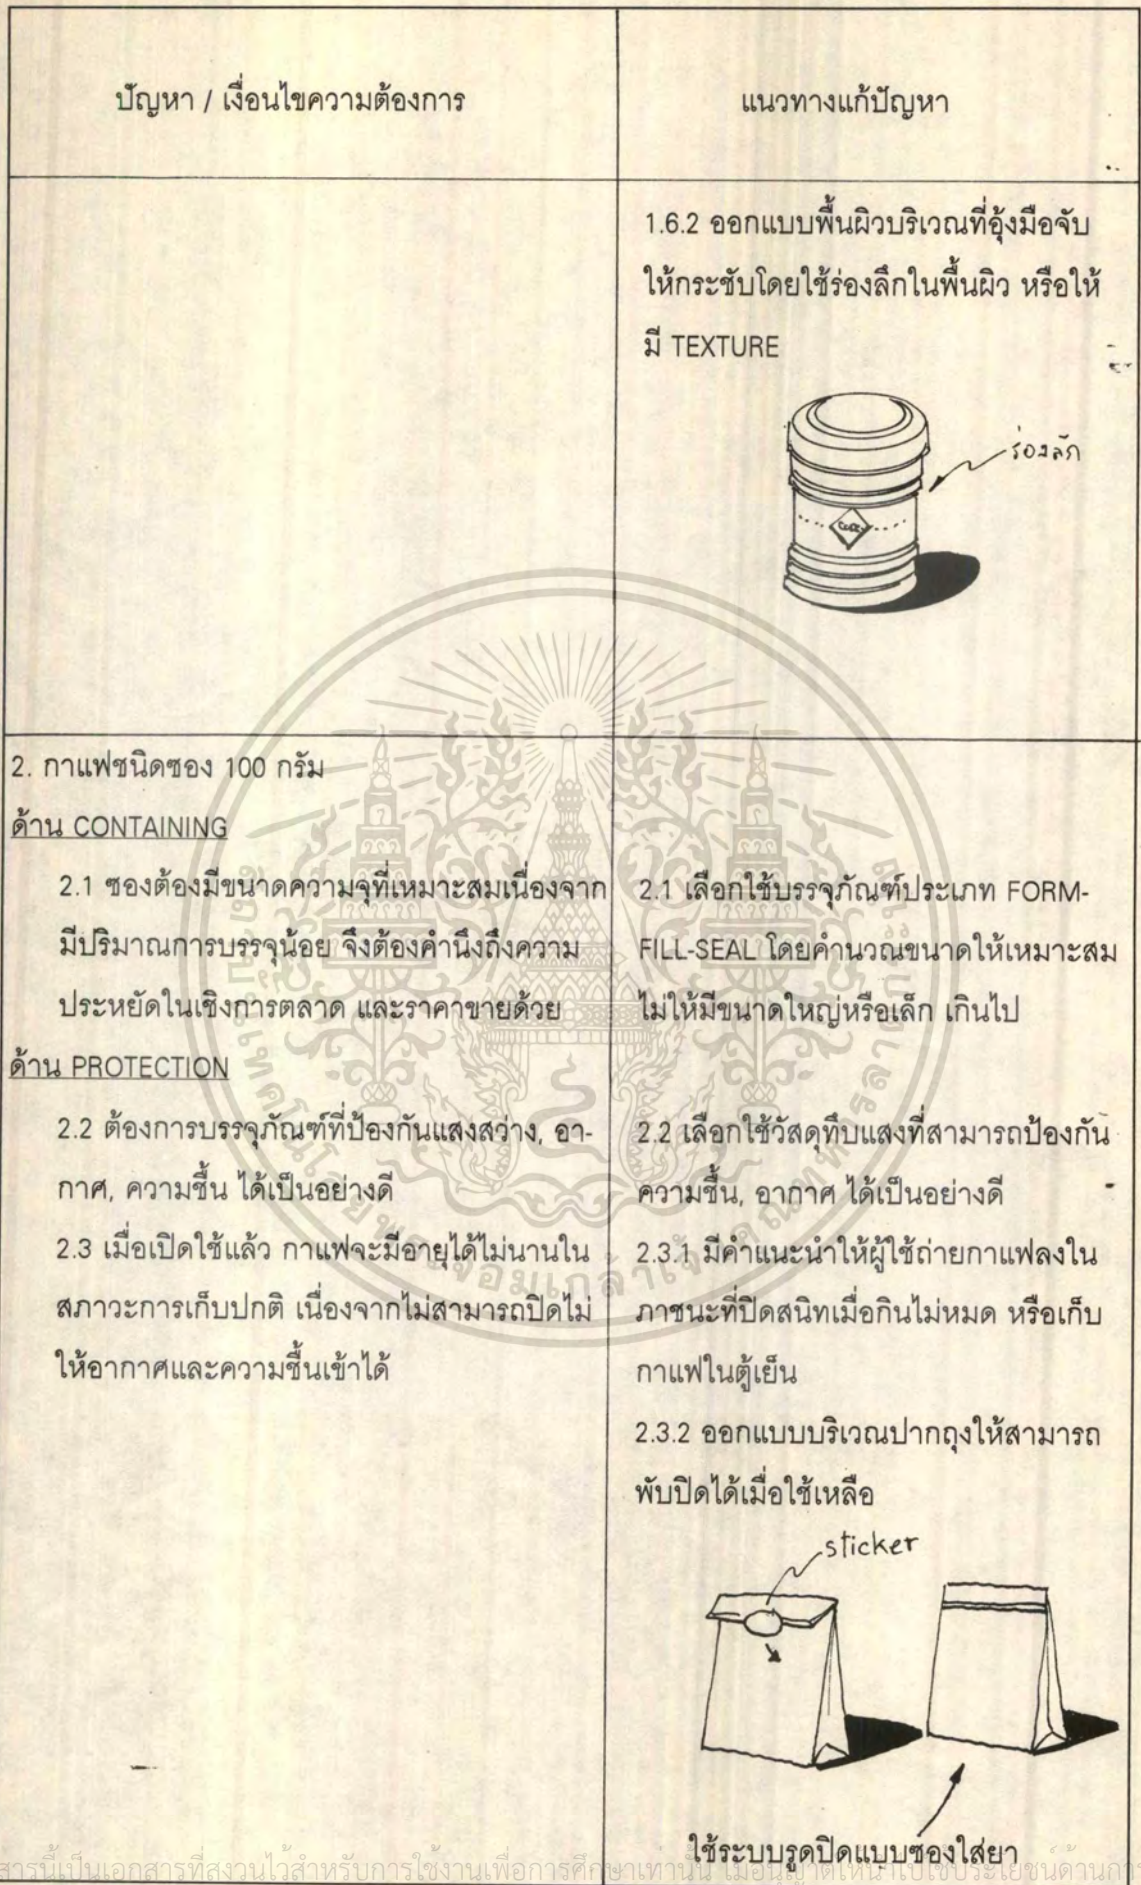 ปัญหา / เงื่อนไขความต้องการ
แนวทางแก้ปัญหา
1.6.2 ออกแบบพื้นผิวบริเวณที่อุ้งมือจับ
ให้กระชับโดยใช้ร่องลึกในพื้นผิว หรือให้
มี TEXTURE
ร่องลึก
2. กาแฟชนิดซอง 100 กรัม
ด้าน CONTAINING
2.1 ซองต้องมีขนาดความจุที่เหมาะสมเนื่องจาก
มีปริมาณการบรรจุน้อย จึงต้องคำนึงถึงความ
ประหยัดในเชิงการตลาด และราคาขายด้วย
ด้าน PROTECTION
2.2 ต้องการบรรจุภัณฑ์ที่ป้องกันแสงสว่าง, อา-
กาศ, ความชื้น ได้เป็นอย่างดี
2.3 เมื่อเปิดใช้แล้ว กาแฟจะมีอายุได้ไม่นานใน
สภาวะการเก็บปกติ เนื่องจากไม่สามารถปิดไม่
ให้อากาศและความชื้นเข้าได้
2.1 เลือกใช้บรรจุภัณฑ์ประเภท FORM-
FILL-SEAL โดยคำนวณขนาดให้เหมาะสม
ไม่ให้มีขนาดใหญ่หรือเล็ก เกินไป
2.2 เลือกใช้วัสดุทึบแสงที่สามารถป้องกัน
ความชื้น, อากาศ ได้เป็นอย่างดี
2.3.1 มีคำแนะนำให้ผู้ใช้ถ่ายกาแฟลงใน
ภาชนะที่ปิดสนิทเมื่อกินไม่หมด หรือเก็บ
กาแฟในตู้เย็น
2.3.2 ออกแบบบริเวณปากถุงให้สามารถ
พับปิดได้เมื่อใช้เหลือ
sticker
ใช้ระบบรูดปิดแบบซองใส่ยา
สารนี้เป็นเอกสารที่สงวนไว้สำหรับการใช้งานเพื่อการศึกษาเท่านั้น ไม่อนุญาตให้นำไปใช้ประโยชน์ด้านการ